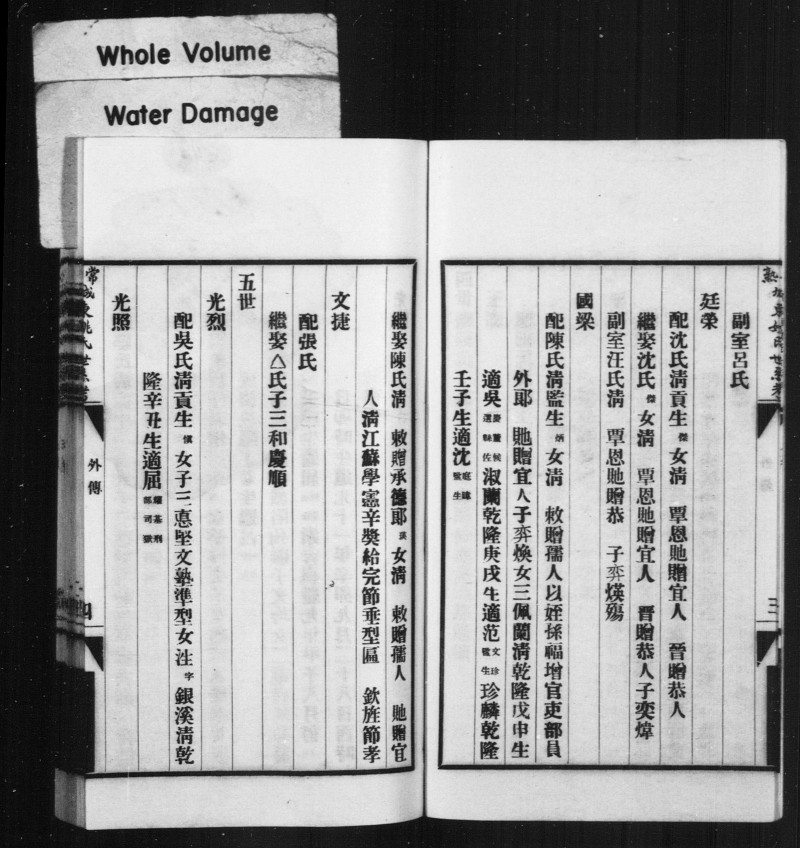 Whole Volume
Water Damage
副室呂氏
廷榮
配沈氏清貢生傑女清 覃恩貤贈宜人 晉贈恭人
繼娶沈氏傑女清 覃恩貤贈宜人 晉贈恭人子奕煒
副室汪氏清 覃恩貤贈恭 子弈煐殤
國梁
配陳氏清監生炳女清 敕贈孺人以姪孫福增官吏部員
外郞 貤贈宜人子弈煥女三佩蘭清乾隆戊申生
適吳候選縣佐淑蘭乾隆庚戌生適范文珍監生珍麟乾隆
壬子生適沈廷建監生
三
繼娶陳氏清 敕贈承德郞女清 敕贈孺人 貤贈宜
人清江蘇學憲辛獎給完節垂型匾 欽旌節孝
文捷
配張氏
繼娶△氏子三和慶順
五世
光烈
配吳氏清貢生愼女子三悳堅文塾準型女注字銀溪清乾
隆辛丑生適屈
光照
外傳
四